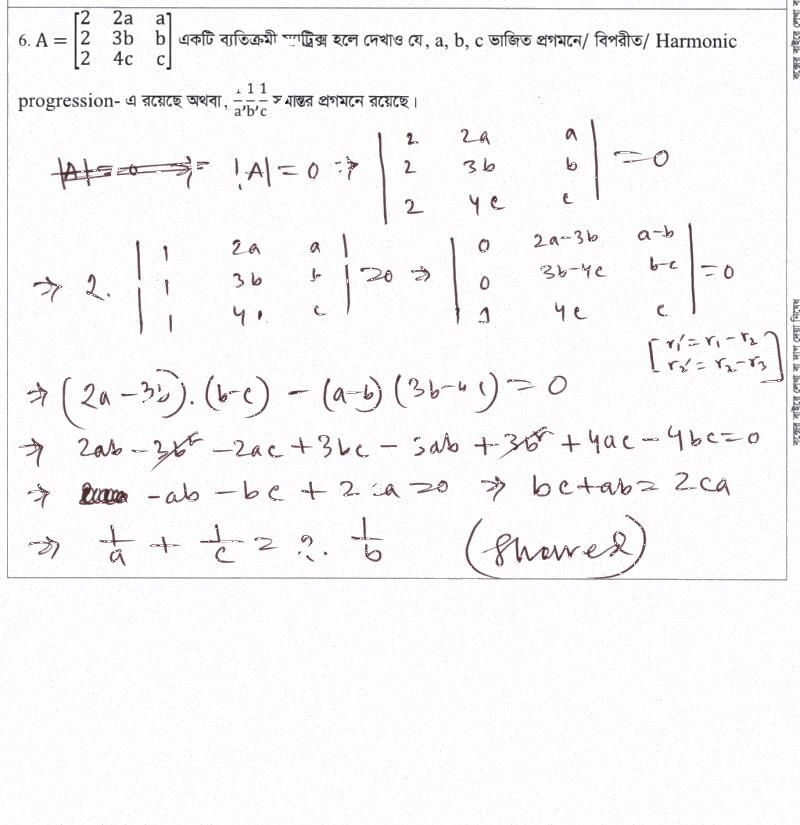 6. A = [2 2a a; 2 3b b; 2 4c c] একটি ব্যতিক্রমী ম্যাট্রিক্স হলে দেখাও যে, a, b, c ভাজিত প্রগমনে/ বিপরীত/ Harmonic
progression- এ রয়েছে অথবা, 1/a, 1/b, 1/c সমান্তর প্রগমনে রয়েছে।
|A| = 0 ⇒ |2 2a a; 2 3b b; 2 4c c| = 0
⇒ 2. |1 2a a; 1 3b b; 1 4c c| = 0 ⇒ |0 2a-3b a-b; 0 3b-4c b-c; 1 4c c| = 0
[r₁' = r₁ - r₂
r₂' = r₂ - r₃]
⇒ (2a-3b).(b-c) - (a-b)(3b-4c) = 0
⇒ 2ab - 3b² - 2ac + 3bc - 3ab + 3b² + 4ac - 4bc = 0
⇒ -ab - bc + 2ca = 0 ⇒ bc + ab = 2ca
⇒ 1/a + 1/c = 2. 1/b (Showed)